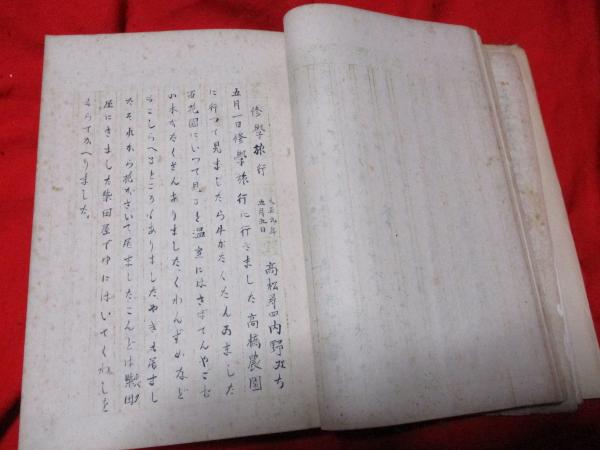 修學旅行
大正九年
五月五日
高松尋四内野みち
五月一日修學旅行に行きました高橋農園
に行つて見ましたら牛がたくさんゐました
百花園にいつて見ると温室にはさぼてんやごむ
の木がたくさんありました、くわんずめなど
をこしらへるところもありましたやぎも居まし
たそれから花がさいて居ましたこんどは柴田
屋にきました柴田屋で中にはいてくわしを
もらてかへりました。